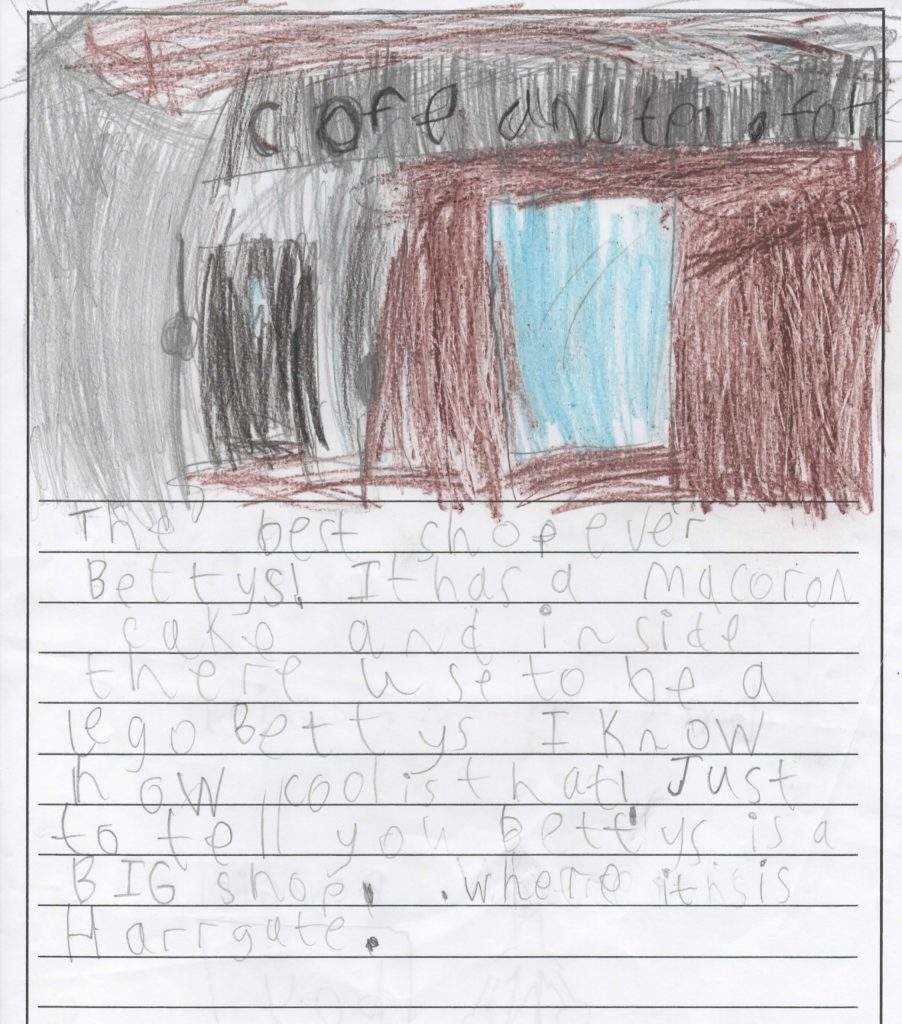 cofe
The best shop ever
Bettys! It has a macoron
cake and inside
there use to be a
lego Bettys I Know
how cool is that! Just
to tell you bettys is a
BIG shop, .where it is
Harrgate.